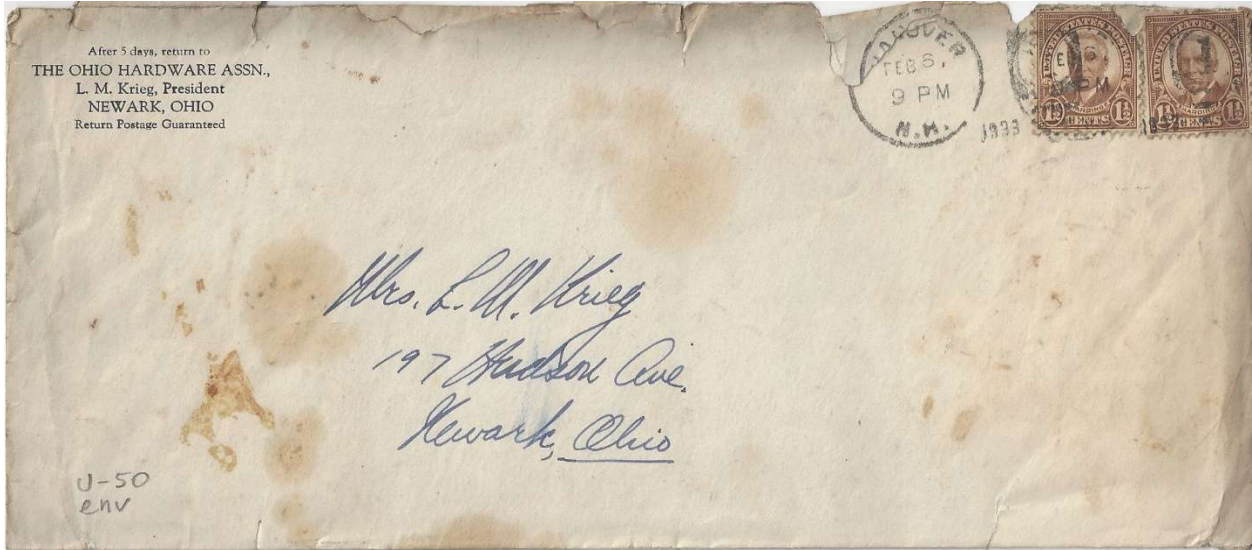 After 5 days, return to
THE OHIO HARDWARE ASSN.,
L. M. Krieg, President
NEWARK, OHIO
Return Postage Guaranteed
FEB 6,
9 PM
N.H.
1933
UNITED STATES POSTAGE
HARDING
1½ CENTS 1½
UNITED STATES POSTAGE
HARDING
1½ CENTS 1½
Mrs. L. M. Krieg
197 Hudson Ave.
Newark, Ohio
J-50
env